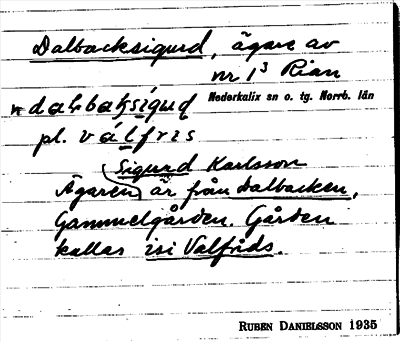 Dalbacksigurd, ägare av
nr 1³ Rian
Nederkalix sn o. tg. Norrb. län
pl. válfrıs
Sigurd Karlsson
Ägaren är från Dalbacken,
Gammelgården. Gården
kallas isi Valfrids.
RUBEN DANIELSSON 1935